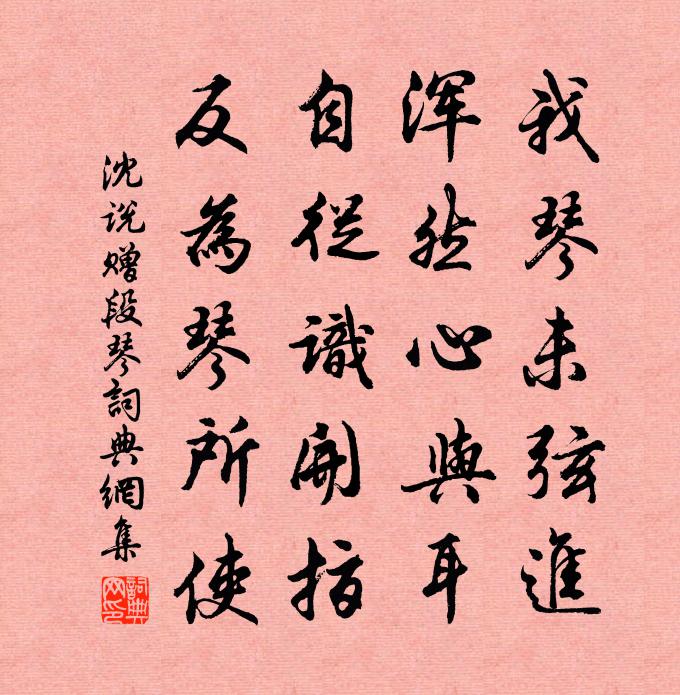 我琴未弦進
渾然心與耳
自從識開指
反為琴所使
沈說贈段琴詞典網集
詞典網印